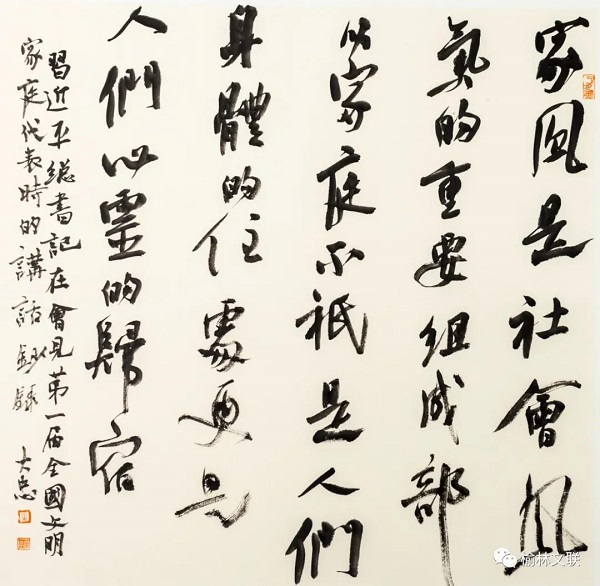 家風是社會風
氣的重要組成部
分家庭不衹是人們
身體的住處更是
人們心靈的歸宿
習近平總書記在會見第一届全國文明
家庭代表時的講話鈔錄
大忠
榆林文联